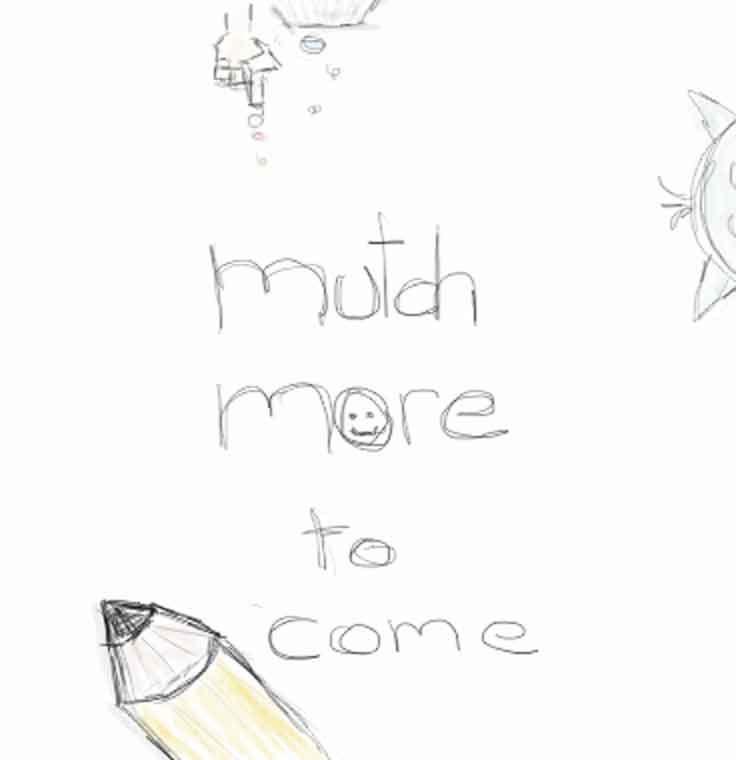 mutch
more
to
come